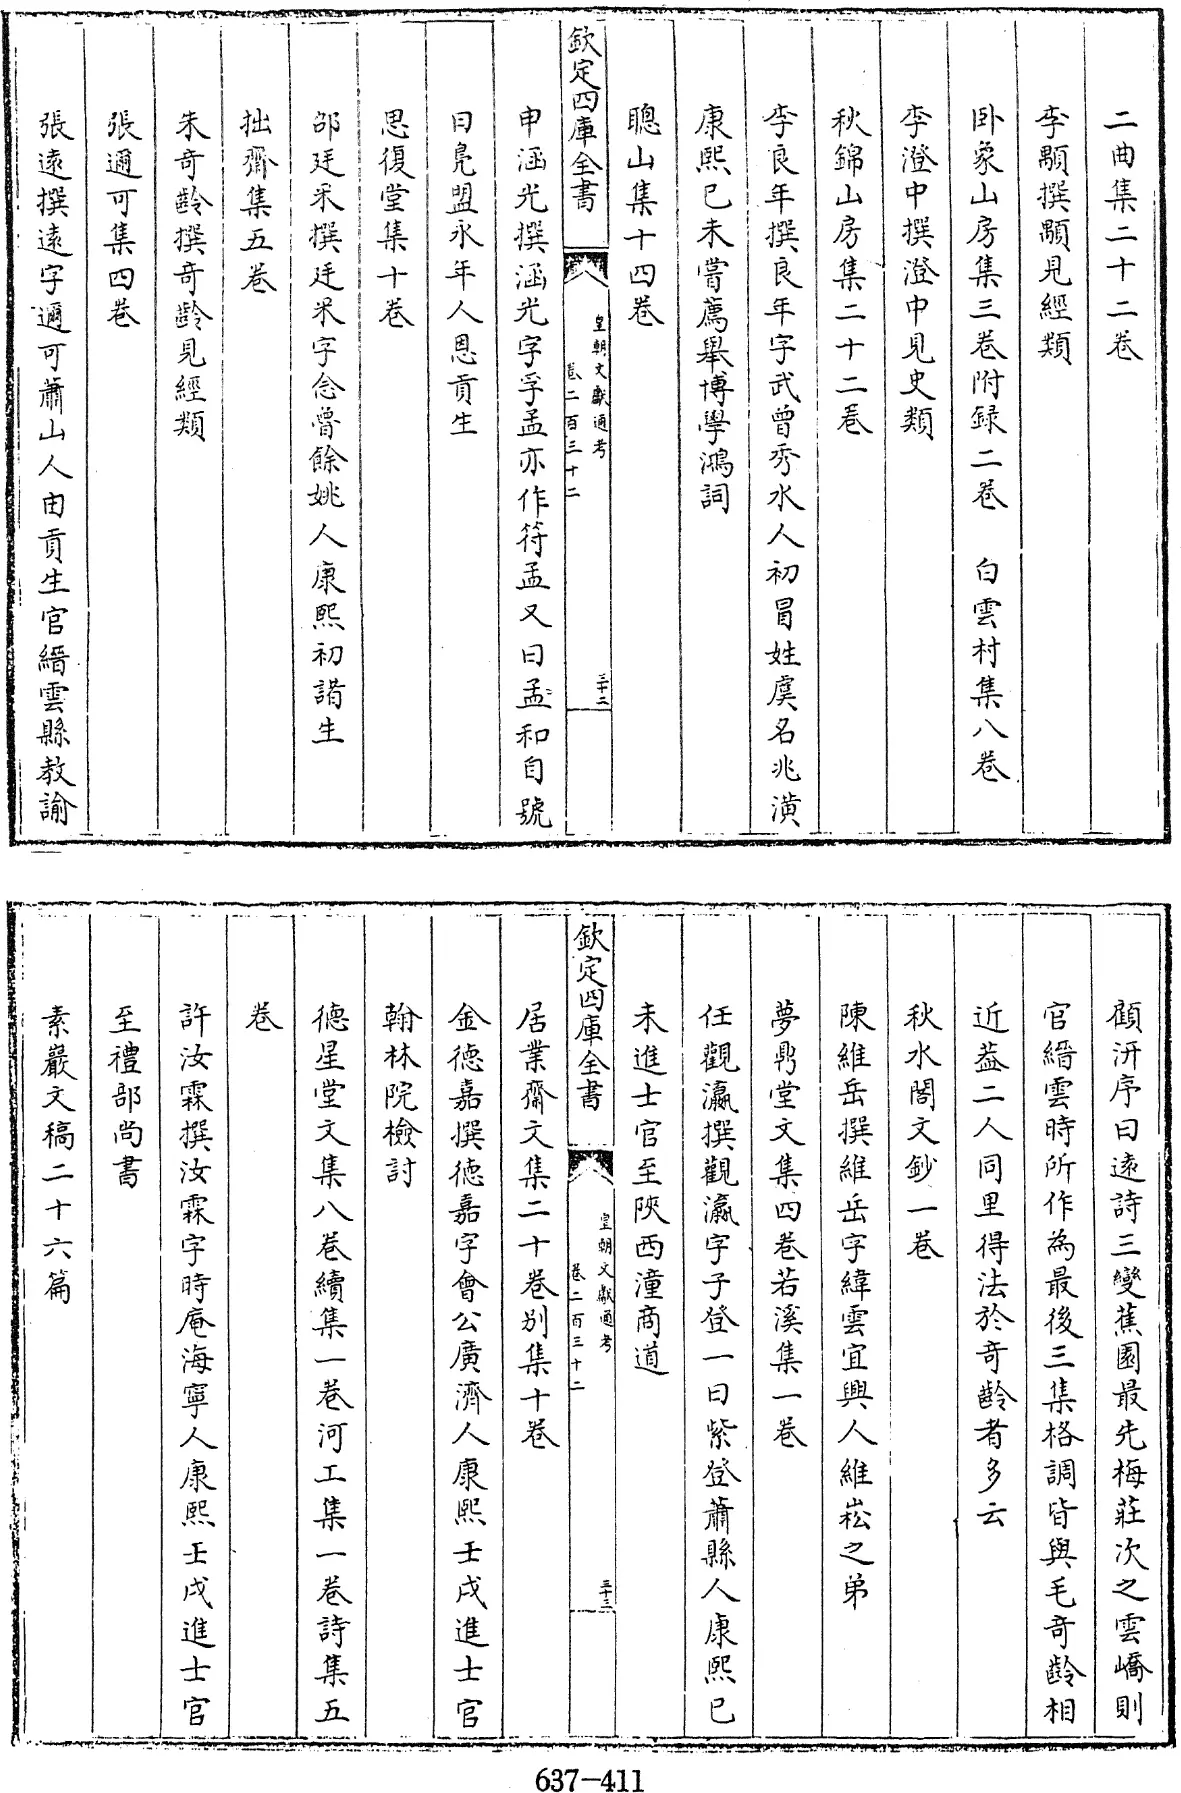 二曲集二十二卷
李顒撰顒見經類
卧象山房集三卷附録二卷　白雲村集八卷
李澄中撰澄中見史類
秋錦山房集二十二卷
李良年撰良年字武曾秀水人初冒姓虞名兆潢
康熙己未嘗薦舉博學鴻詞
聰山集十四卷
欽定四庫全書
皇朝文獻通考
卷二百三十二
三十二
申涵光撰涵光字孚孟亦作符孟又曰孟和自號
曰凫盟永年人恩貢生
思復堂集十卷
邵廷采撰廷采字念曾餘姚人康熙初諸生
拙齋集五卷
朱奇齡撰奇齡見經類
張邇可集四卷
張遠撰遠字邇可蕭山人由貢生官縉雲縣教諭
顧汧序曰遠詩三變蕉園最先梅莊次之雲嶠則
官縉雲時所作為最後三集格調皆與毛奇齡相
近葢二人同里得法於奇齡者多云
秋水閣文鈔一卷
陳維岳撰維岳字緯雲宜興人維崧之弟
夢鼎堂文集四卷若溪集一卷
任觀瀛撰觀瀛字子登一曰紫登蕭縣人康熙己
未進士官至陝西潼商道
欽定四庫全書
皇朝文獻通考
卷二百三十二
三十三
居業齋文集二十卷别集十卷
金德嘉撰德嘉字會公廣濟人康熙壬戌進士官
翰林院檢討
德星堂文集八卷續集一卷河工集一卷詩集五
卷
許汝霖撰汝霖字時庵海寧人康熙壬戌進士官
至禮部尚書
素巖文稿二十六篇
637-411